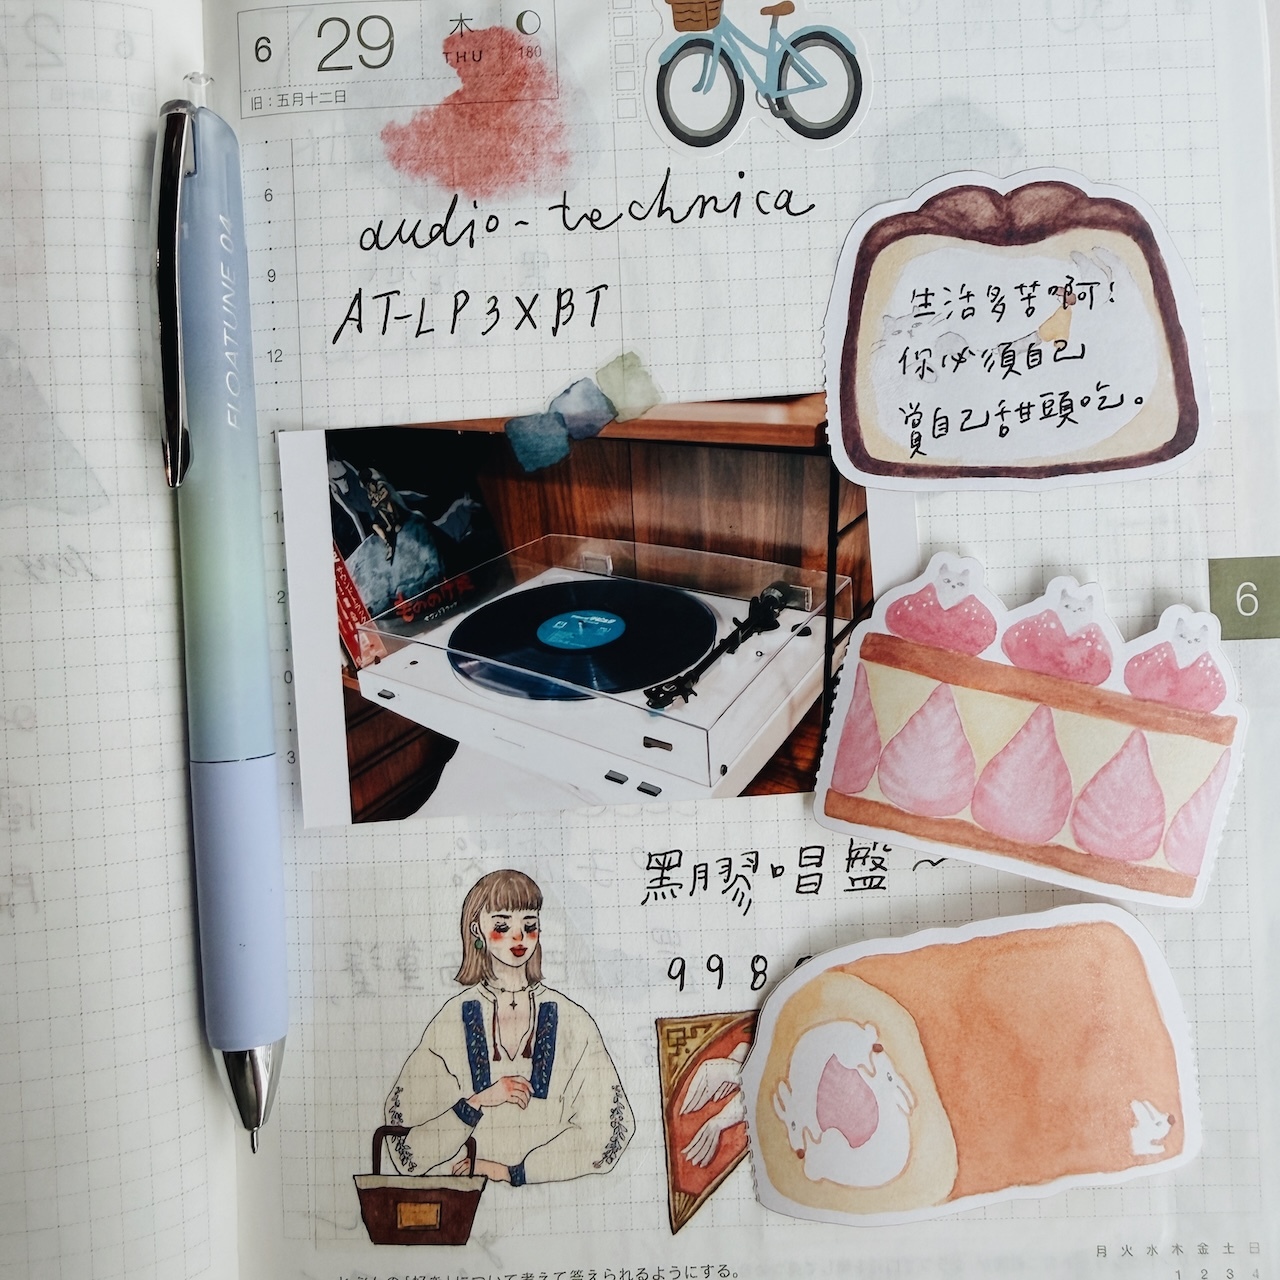 6 29 木 THU 180
旧：五月十二日
6
audio-technica
9
AT-LP3XBT
12
生活多苦啊！
你必須自己
賞自己甜頭吃。
FLOATUNE 04
もののけ姫
6
3
黑膠唱盤～
998
月 火 水 木 金 土 日
1 2 3 4
について考えて答えられるようにする。